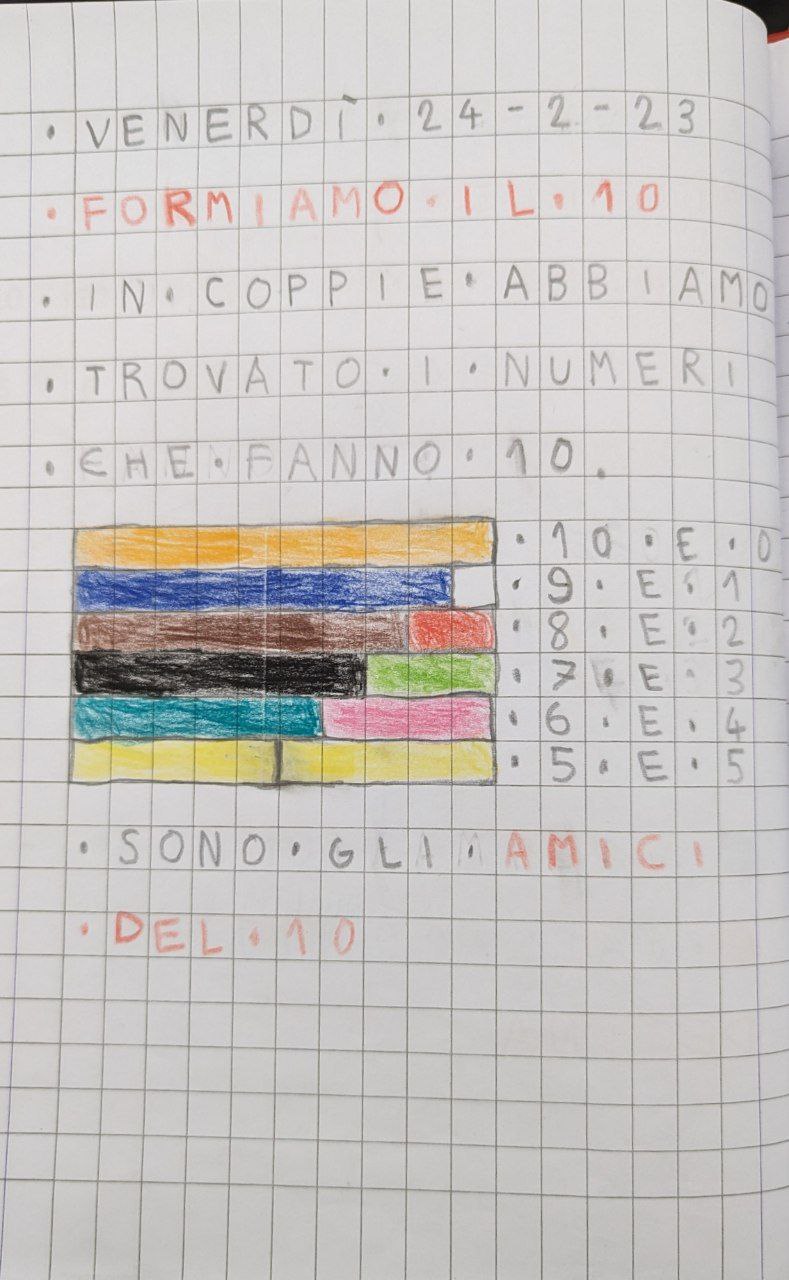 • VENERDÌ • 24-2-23
• FORMIAMO • IL • 10
• IN • COPPIE • ABBIAMO
• TROVATO • I • NUMERI
• CHE • FANNO • 10.
• 10 • E • 0
• 9 • E • 1
• 8 • E • 2
• 7 • E • 3
• 6 • E • 4
• 5 • E • 5
• SONO • GLI • AMICI
• DEL • 10